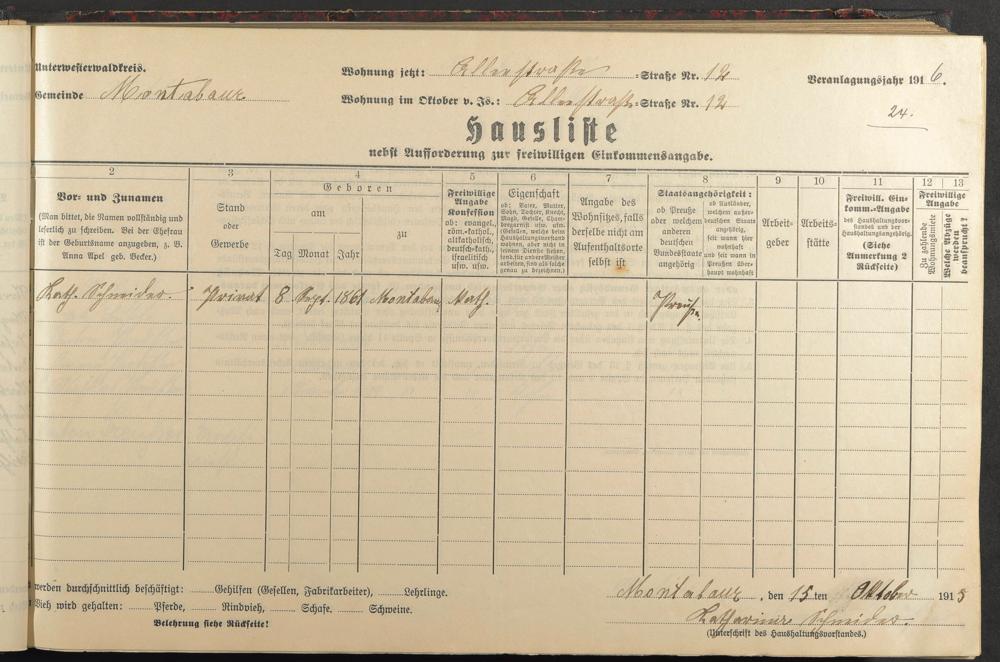 Unterwesterwaldkreis.
Gemeinde Montabaur
Wohnung jetzt: Alleestraße =Straße Nr. 12
Wohnung im Oktober v. Js.: Alleestraße =Straße Nr. 12
Veranlagungsjahr 1916.
24.
Hausliste
nebst Aufforderung zur freiwilligen Einkommensangabe.
2
Vor- und Zunamen
(Man bittet, die Namen vollständig und
leserlich zu schreiben. Bei der Ehefrau
ist der Geburtsname anzugeben, z. B.
Anna Apel geb. Becker.)
3
Stand
oder
Gewerbe
4
Geboren
am
Tag Monat Jahr
zu
5
Freiwillige
Angabe
Konfession
ob: evangel.,
röm.-kathol.,
altkatholisch,
deutsch-kath.,
israelitisch
usw. usw.
6
Eigenschaft
ob: Vater, Mutter,
Sohn, Tochter, Knecht,
Magd, Geselle, Cham-
bergarnist usw. usw.
(Gesellen, welche beim
Haushaltungsvorstand
wohnen, aber nicht in
seinem Dienste stehen,
sind als solche
genau zu bezeichnen.)
7
Angabe des
Wohnsitzes, falls
derselbe nicht am
Aufenthaltsorte
selbst ist
8
Staatsangehörigkeit:
ob Preuße
oder welchem
anderen
deutschen
Bundesstaate
angehörig
ob Ausländer,
welchem außer-
deutschen Staate
angehörig,
seit wann hier
wohnhaft
und seit wann
in Preußen über-
haupt wohnhaft
9
Arbeit-
geber
10
Arbeits-
stätte
11
Freiwill. Ein-
komm.-Angabe
des Haushaltungsvor-
standes und der
Haushaltungsangehörig.
(Siehe
Anmerkung 2
Rückseite)
12 13
Freiwillige
Angabe
Zu zahlende
Wohnungsmiete
Welche Abzüge
werden
beansprucht?
Kath. Schneider. Privat 8 Sept. 1861 Montabaur kath. Preuße.
werden durchschnittlich beschäftigt: Gehilfen (Gesellen, Fabrikarbeiter), Lehrlinge.
Vieh wird gehalten: Pferde, Rindvieh, Schafe, Schweine.
Belehrung siehe Rückseite!
Montabaur, den 15 ten Oktober 1915
Katharina Schneider.
(Unterschrift des Haushaltungsvorstandes.)